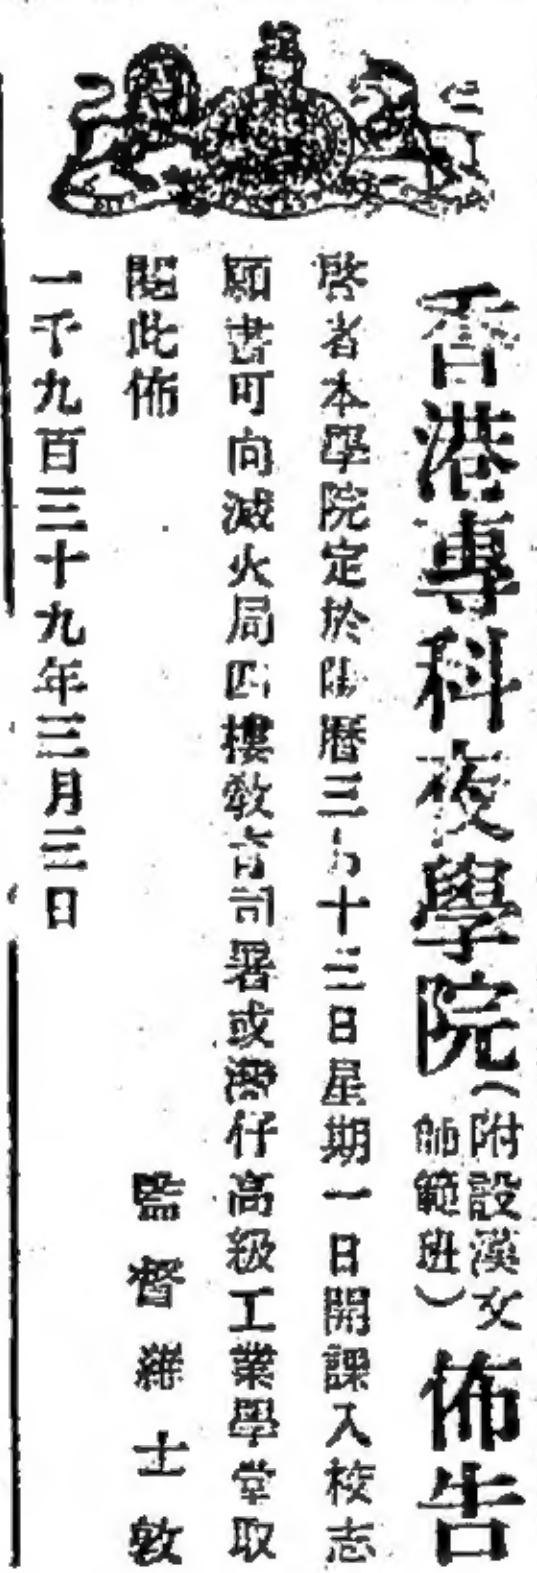 香港專科夜學院(附設漢文師範班)佈告
啓者本學院定於陽曆三月十三日星期一日開課入校志
願書可向滅火局四樓教育司署或灣仔高級工業學堂取
閱此佈
監督羅士敦
一千九百三十九年三月三日